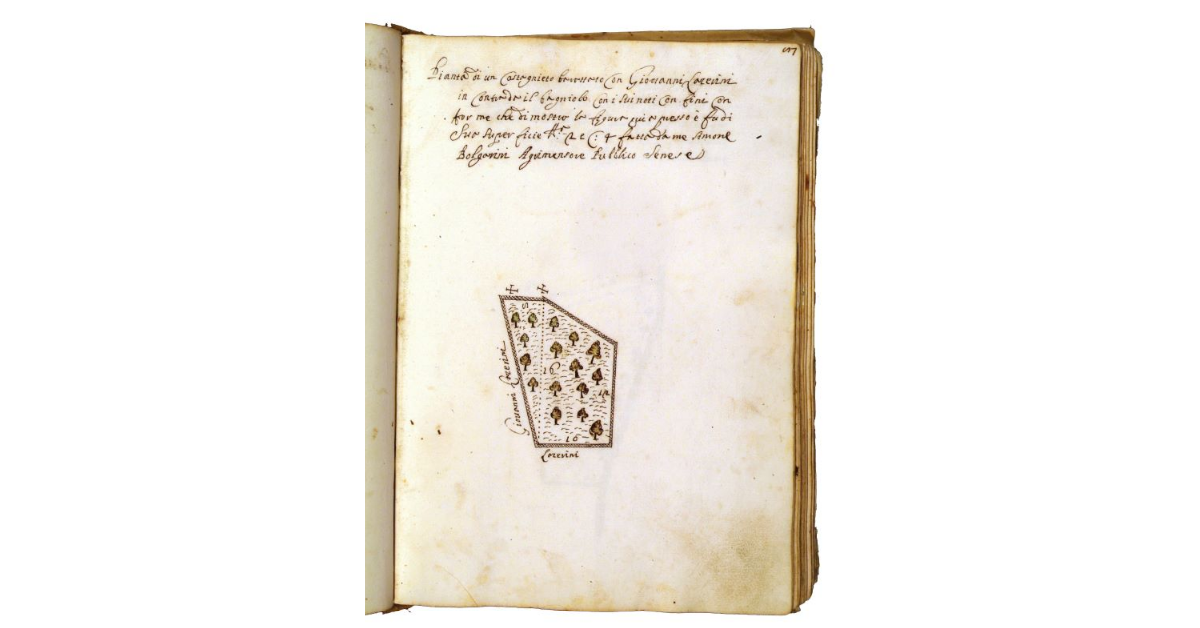 Pianta di un Castagnieto Con Giovanni Lorerini
in Contrada il bagniolo Con i Suinoti Con fini Con
for me che dimostra la figura qui espresso è fu di
Sua Super ficce 2 e C: 4 fatta da me Simone
Bolgarini Agrimensore Publico Senese
8
16
Giovanni Lorerini
16
Lorerini